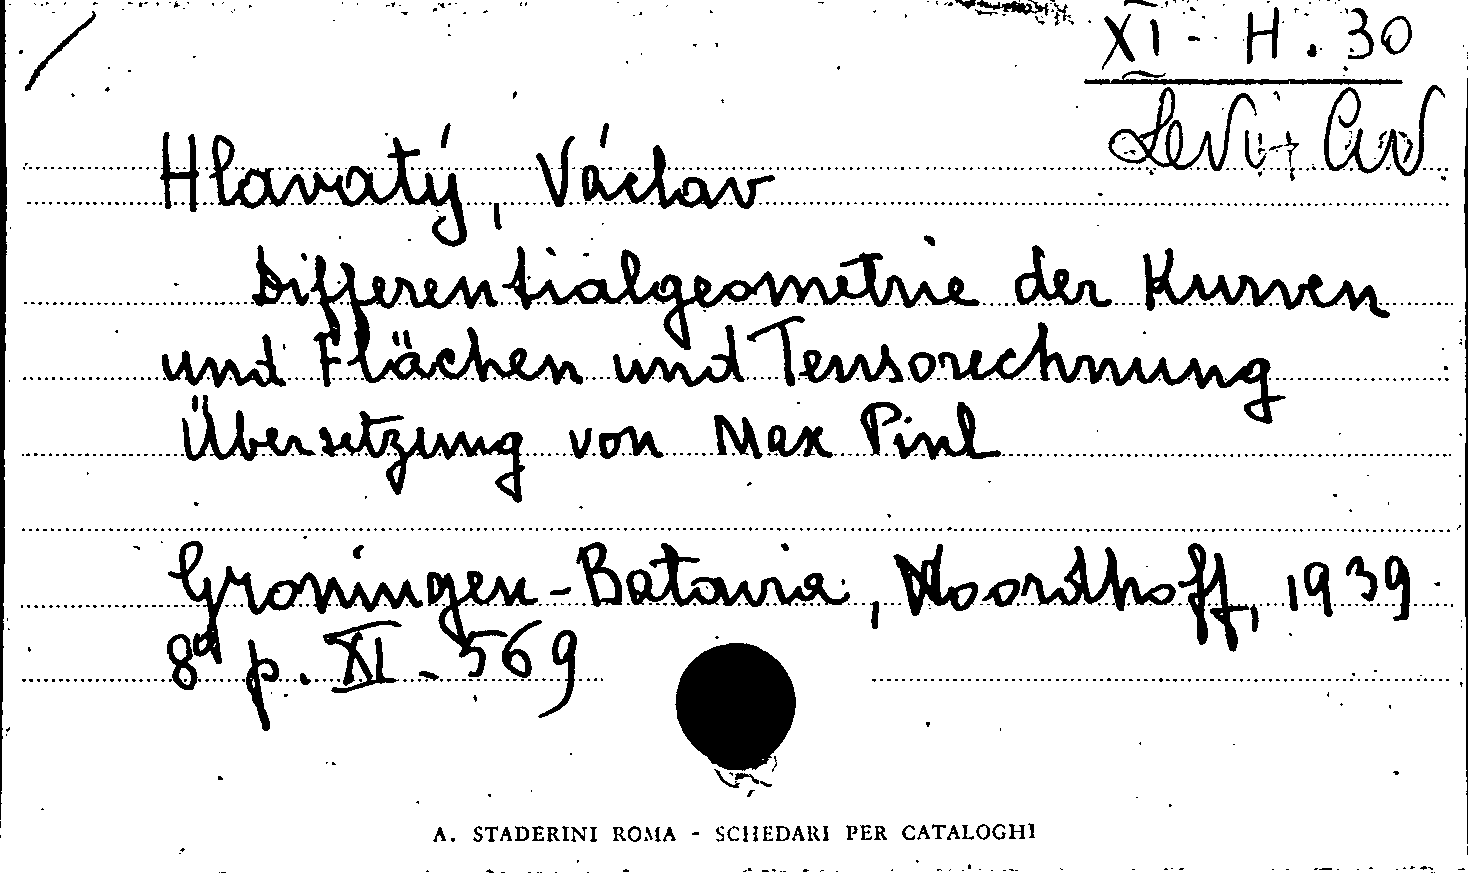 XI - H. 30
Levi Civ
Hlavatý, Václav
Differentialgeometrie der Kurven
und Flächen und Tensorechnung
Übersetzung von Max Pinl
Groningen-Batavia, Noordhoff, 1939
8° p. XI - 569
A. STADERINI ROMA - SCHEDARI PER CATALOGHI